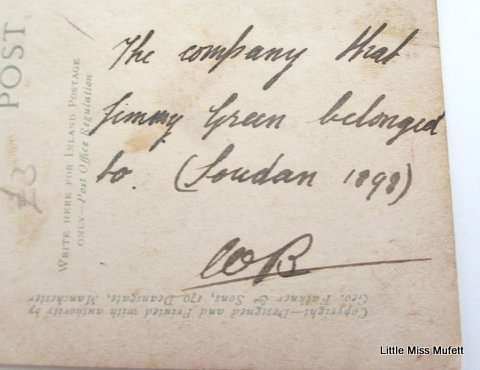 The company that
Jimmy Green belonged
to. (Soudan 1898)
WB
POST
£3
WRITE HERE FOR INLAND POSTAGE
ONLY—Post Office Regulation
Copyright—Designed and Printed with authority by
Geo. Falkner & Sons, 170 Deansgate, Manchester
Little Miss Mufett